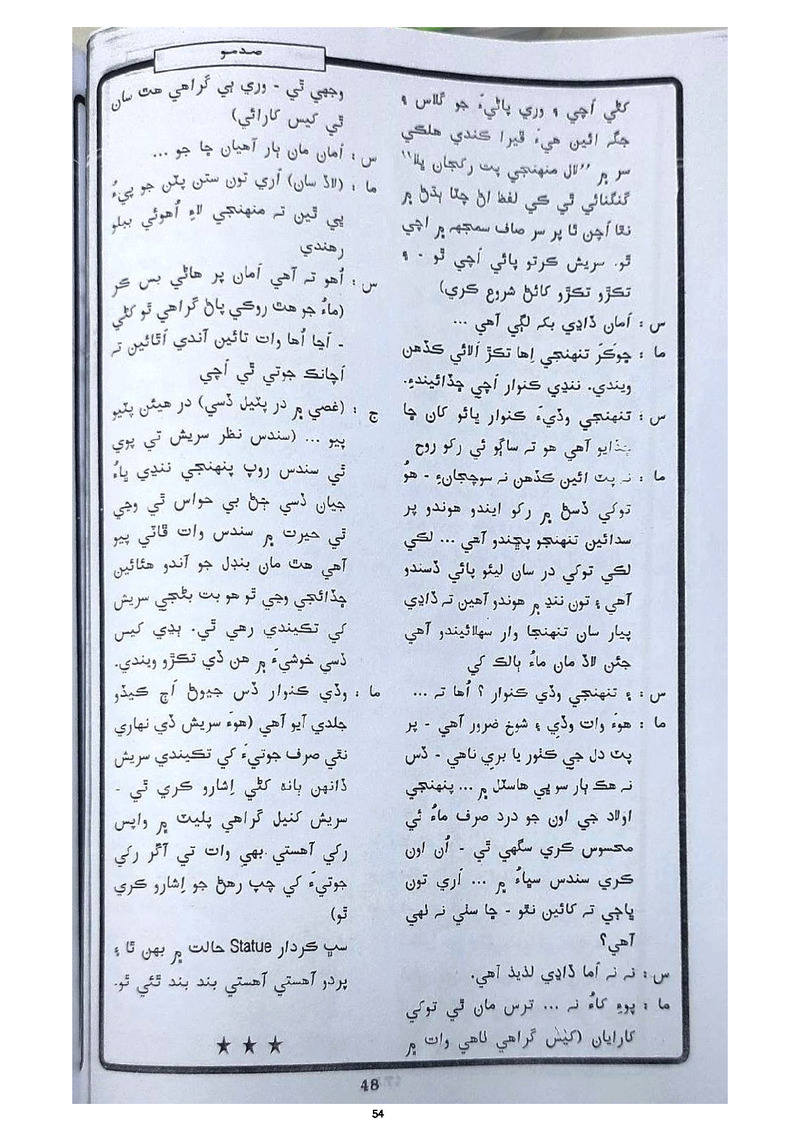 صدمو
کڻي اَچي ۽ وري پاڻيءَ جو گلاس ۽
جڳہ ائين هيءَ ڦيرا ڪندي هلڪي
سر ۾ ”لال منهنجي پت رکجان ڀلا“
گنگنائي ٿي ڪي لفظ اڻ چٽا ٻڌڻ ۾
نٿا اَچن ٿا پر سر صاف سمجهہ ۾ اچي
ٿو. سريش ڪرتو پائي اَچي ٿو - ۽
تڪڙو تڪڙو کائڻ شروع ڪري)
س : اَمان ڏاڍي بک لڳي آهي ...
ما : ڇوڪَر تنهنجي اِها تڪڙ اَلائي ڪڏهن
ويندي. ننڍي ڪنوار اَچي ڇڏائيندءِ.
س : تنهنجي وڏيءَ ڪنوار ڀائو کان ڇا
ڇڏايو آهي هو تہ ساڳو ئي رکو روح
ما : نہ پٽ ائين ڪڏهن نہ سوچجانءِ - هُو
توکي ڏسڻ ۾ رکو ايندو هوندو پر
سدائين تنهنجو پڇندو آهي ... لڪي
لڪي توکي در سان ليئو پائي ڏسندو
آهي ۽ تون ننڊ ۾ هوندو آهين تہ ڏاڍي
پيار سان تنهنجا وار سهلائيندو آهي
ڄڻن لاڏ مان ماءُ ٻالڪ کي
س : ۽ تنهنجي وڏي ڪنوار ؟ اُها تہ ...
ما : هوءَ وات وڏي ۽ شوخ ضرور آهي - پر
پٽ دل جي ڪٺور يا بري ناهي - ڏس
نہ هڪ ٻار سو ڀي هاسٽل ۾ ... پنهنجي
اولاد جي اون جو درد صرف ماءُ ئي
محسوس ڪري سگهي ٿي - اُن اون
ڪري سندس سڀاءُ ۾ ... اَري تون
ڀاڄي تہ کائين نٿو - ڇا سٺي نہ لهي
آهي؟
س : نہ نہ اَما ڏاڍي لذيذ آهي.
ما : پوءِ کاءُ نہ ... ترس مان ٿي توکي
کارايان (کيس گراهي ٺاهي وات ۾
وجهي ٿي - وري ٻي گراهي هٿ سان
ٿي کيس کارائي)
س : اَمان مان ٻار آهيان ڇا جو ...
ما : (لاڏ سان) اَري تون ستن پٽن جو پيءُ
ڀي ٿين تہ منهنجي لاءِ اُهوئي ٻيلو
رهندي
س : اُهو تہ آهي اَمان پر هاڻي بس ڪر
(ماءُ جو هٿ روڪي پاڻ گراهي ٿو کڻي
- اَڇا اُها وات تائين آندي اَٿائين تہ
اَچانڪ جوتي ٿي اَچي
ج : (غصي ۾ در پٽيل ڏسي) در هيئن پٽيو
پيو ... (سندس نظر سريش تي پوي
ٿي سندس روپ پنهنجي ننڍي ڀاءُ
جيان ڏسي ڄڻ بي حواس ٿي وڃي
ٿي حيرت ۾ سندس وات ڦاٽي پيو
آهي هٿ مان بنڊل جو آندو هئائين
ڇڏائجي وڃي ٿو هو بت بڻجي سريش
کي تڪيندي رهي ٿي. ٻڍي کيس
ڏسي خوشيءَ ۾ هن ڏي تڪڙو ويندي.
ما : وڏي ڪنوار ڏس جيوڻ اَڄ ڪيڏو
جلدي آيو آهي (هوءَ سريش ڏي نهاري
نٿي صرف جوتيءَ کي تڪيندي سريش
ڏانهن ٻانهہ کڻي اِشارو ڪري ٿي -
سريش کنيل گراهي پليٽ ۾ واپس
رکي آهستي ڀهي وات تي آڱر رکي
جوتيءَ کي چپ رهڻ جو اِشارو ڪري
ٿو)
سڀ ڪردار Statue حالت ۾ بهن ٿا ۽
پردو آهستي آهستي بند بند ٿئي ٿو.
★ ★ ★
48
54